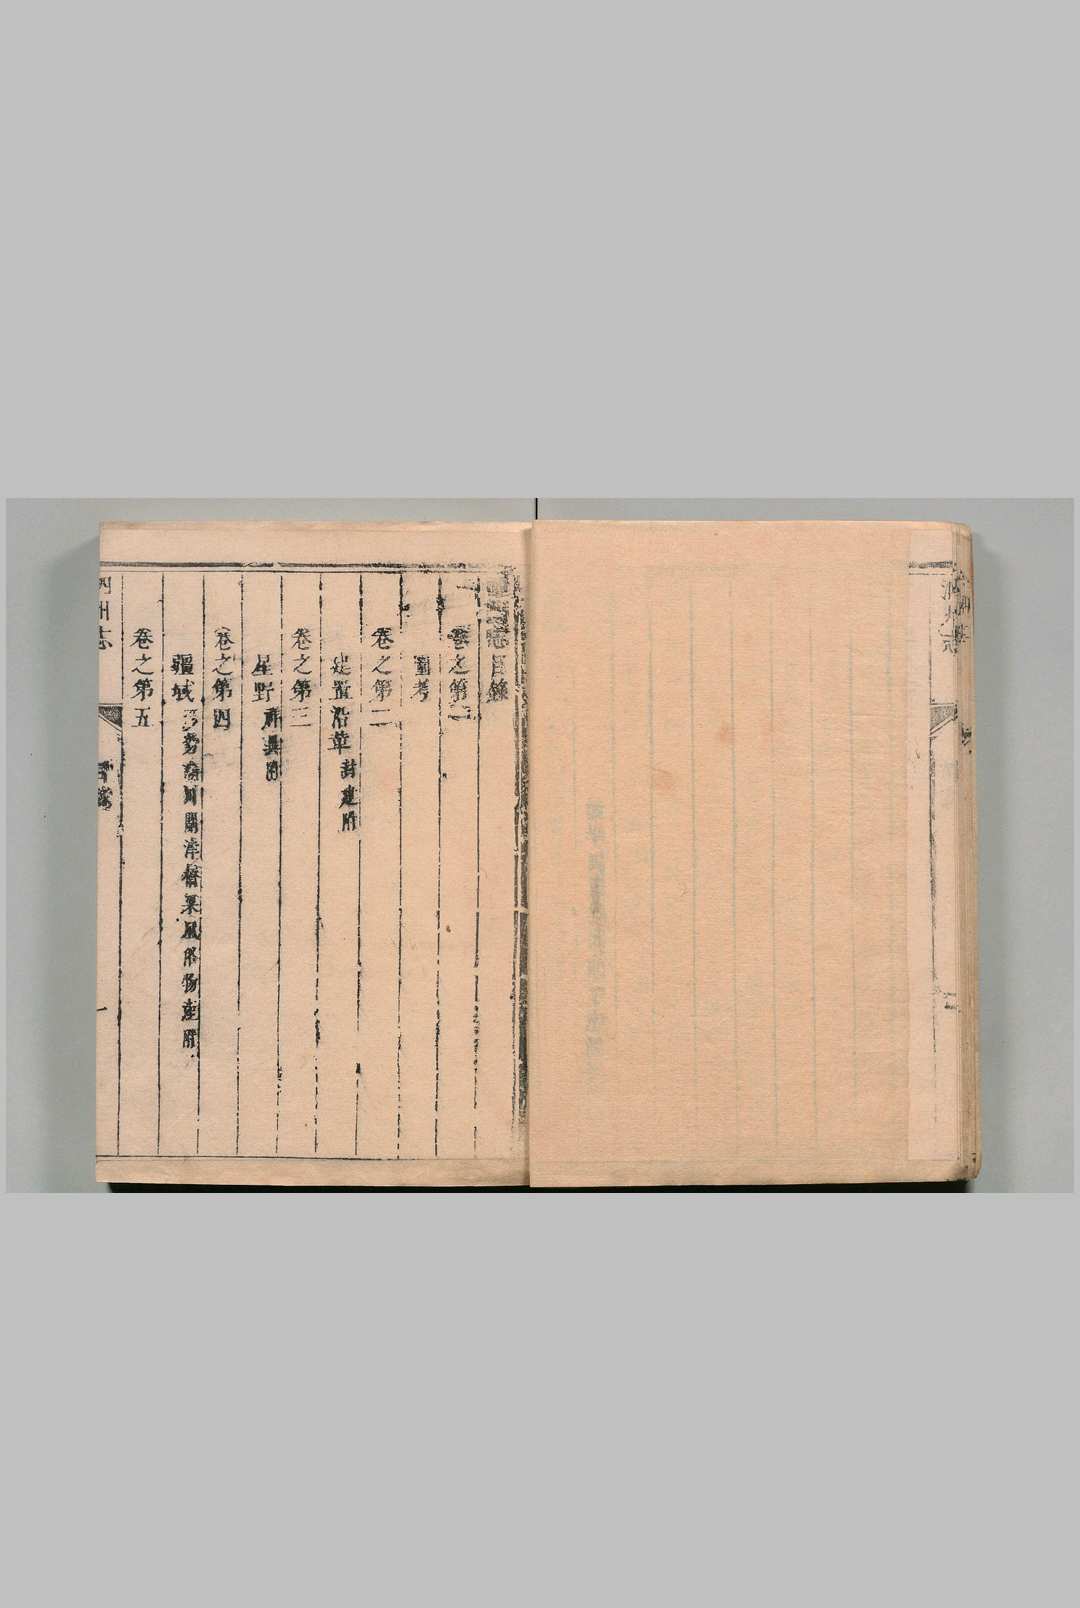 志目錄
卷之第一
圖考
卷之第二
建置沿革 封建附
卷之第三
星野 祥異附
卷之第四
疆域 形勢 山川 關津 橋梁 風俗 物產附
卷之第五
泗州志 目錄 一